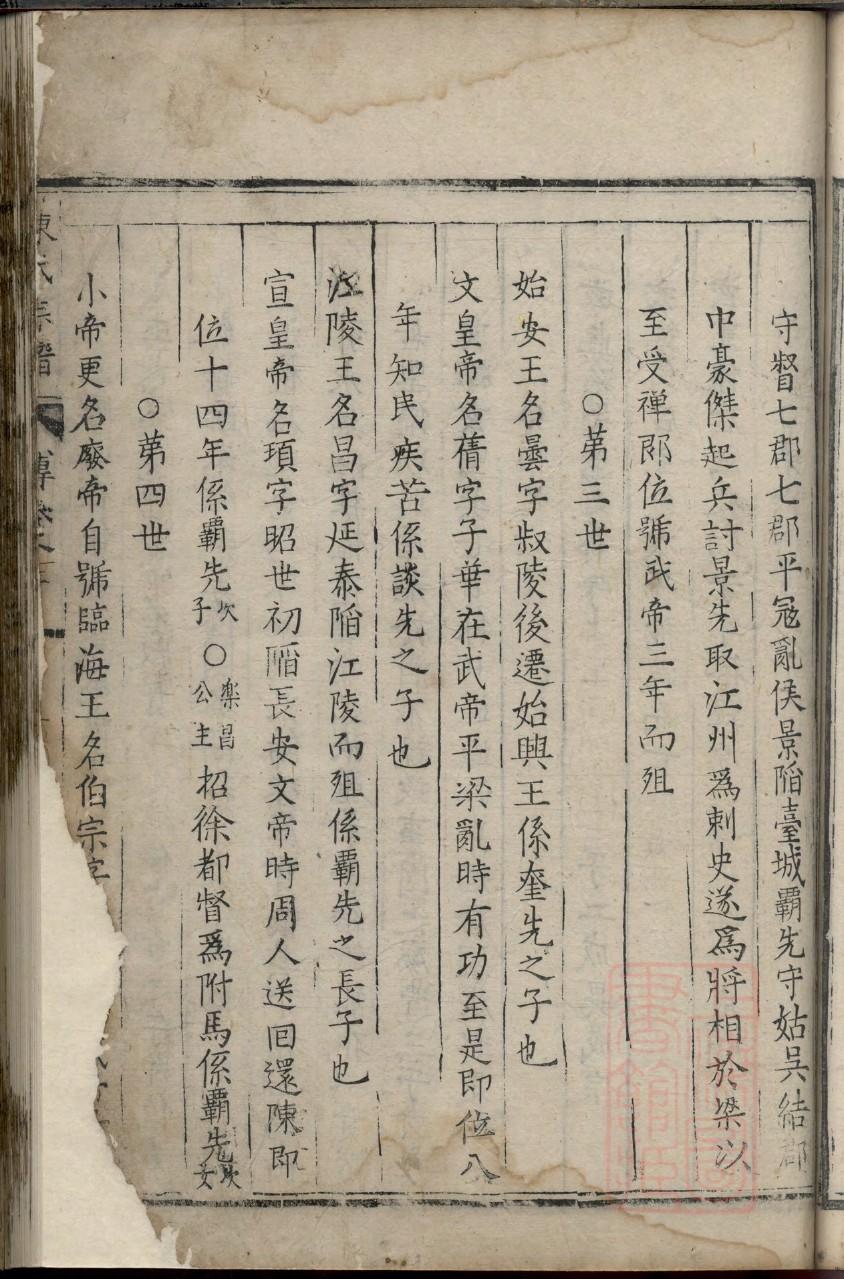 守督七郡七郡平冦亂侯景陷臺城霸先守姑吳結郡
中豪傑起兵討景先取江州爲刺史遂爲將相於梁以
至受禅即位號武帝三年而殂
○第三世
始安王名曇字叔陵後遷始興王係奎先之子也
文皇帝名蒨字子華在武帝平梁亂時有功至是即位八
年知民疾苦係談先之子也
江陵王名昌字延泰陷江陵而殂係霸先之長子也
宣皇帝名頊字昭世初陷長安文帝時周人送回還陳即
位十四年係霸先次子○楽昌公主招徐都督爲附馬係霸先次女
○第四世
小帝更名廢帝自號臨海王名伯宗字
陳氏宗譜